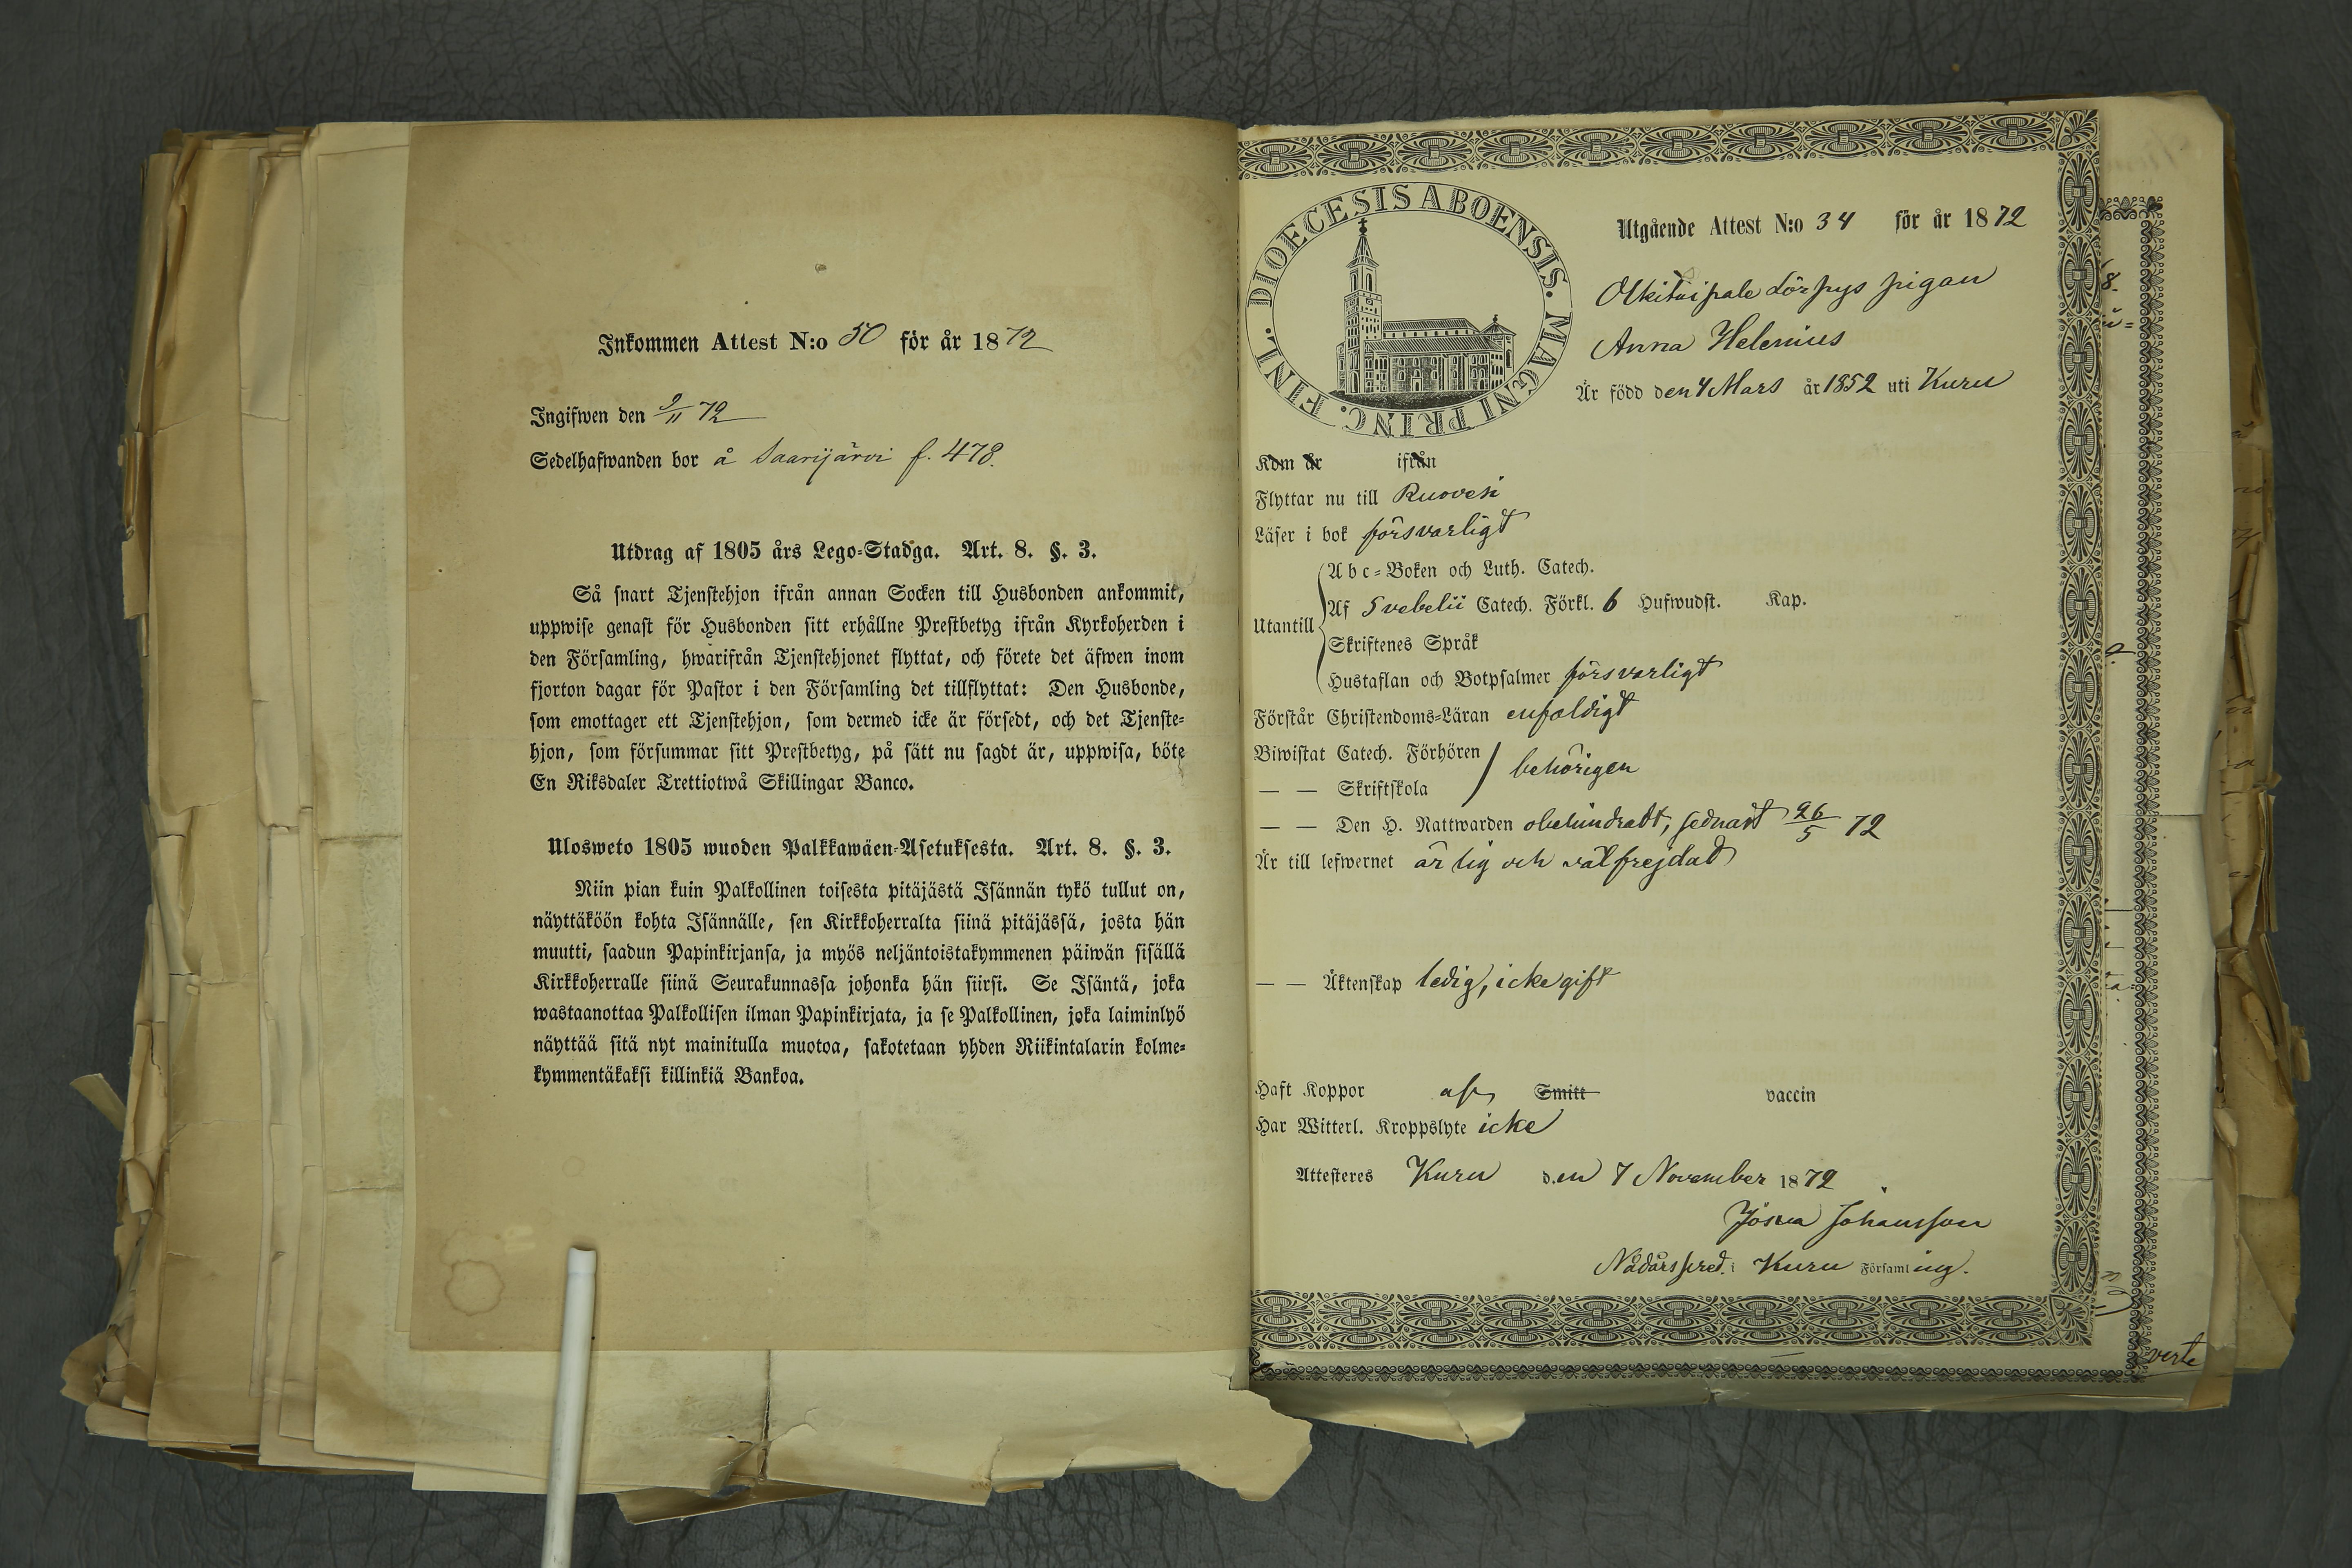 Inkommen Attest N:o 50 för år 1872
Ingifwen den 9/11 72
Sedelhafwanden bor å Saarijärvi f. 478.
Utdrag af 1805 års Lego-Stadga. Art. 8. §. 3.
Så snart Tjenstehjon ifrån annan Socken till Husbonden ankommit,
uppwise genast för Husbonden sitt erhållne Prestbetyg ifrån Kyrkoherden i
den Församling, hwarifrån Tjenstehjonet flyttat, och förete det äfwen inom
fjorton dagar för Pastor i den Församling det tillflyttat: Den Husbonde,
som emottager ett Tjenstehjon, som dermed icke är försedt, och det Tjenste-
hjon, som försummar sitt Prestbetyg, på sätt nu sagdt är, uppwisa, böte
En Riksdaler Trettiotwå Skillingar Banco.
Ulosweto 1805 wuoden Palkkawäen-Asetuksesta. Art. 8. §. 3.
Niin pian kuin Palkollinen toisesta pitäjästä Isännän tykö tullut on,
näyttäköön kohta Isännälle, sen Kirkkoherralta siinä pitäjässä, josta hän
muutti, saadun Papinkirjansa, ja myös neljäntoistakymmenen päiwän sisällä
Kirkkoherralle siinä Seurakunnassa johonka hän siirsi. Se Isäntä, joka
wastaanottaa Palkollisen ilman Papinkirjata, ja se Palkollinen, joka laiminlyö
näyttää sitä nyt mainitulla muotoa, sakotetaan yhden Riikintalarin kolme-
kymmentäkaksi killinkiä Bankoa.
DIOECESIS ABOENSIS. MAGNI PRINC. FINL.
Utgående Attest N:o 34 för år 1872
pigan
Anna Helenius
Är född den 4 Mars år 1852 uti Kuru
Kom år ifrån
Flyttar nu till Ruovesi
Läser i bok försvarligt
Abc-Boken och Luth. Catech.
Af Svebelii Catech. Förkl. 6 Hufwudst. Kap.
Utantill
Skriftenes Språk
Hustaflan och Botpsalmer försvarligt
Förstår Christendoms-Läran enfaldigt
Biwistat Catech. Förhören
behörigen
— — Skriftskola
— — Den H. Nattwarden obehindradt, sednast 26/5 72
Är till lefwernet ärlig och välfrejdad
— — Äktenskap ledig, icke gift
Haft Koppor af Smitt vaccin
Har Witterl. Kroppslyte icke
Attesteres Kuru den 7 November 1872
Josua Johansson
Nådårspred. i Kuru Församling.
verte